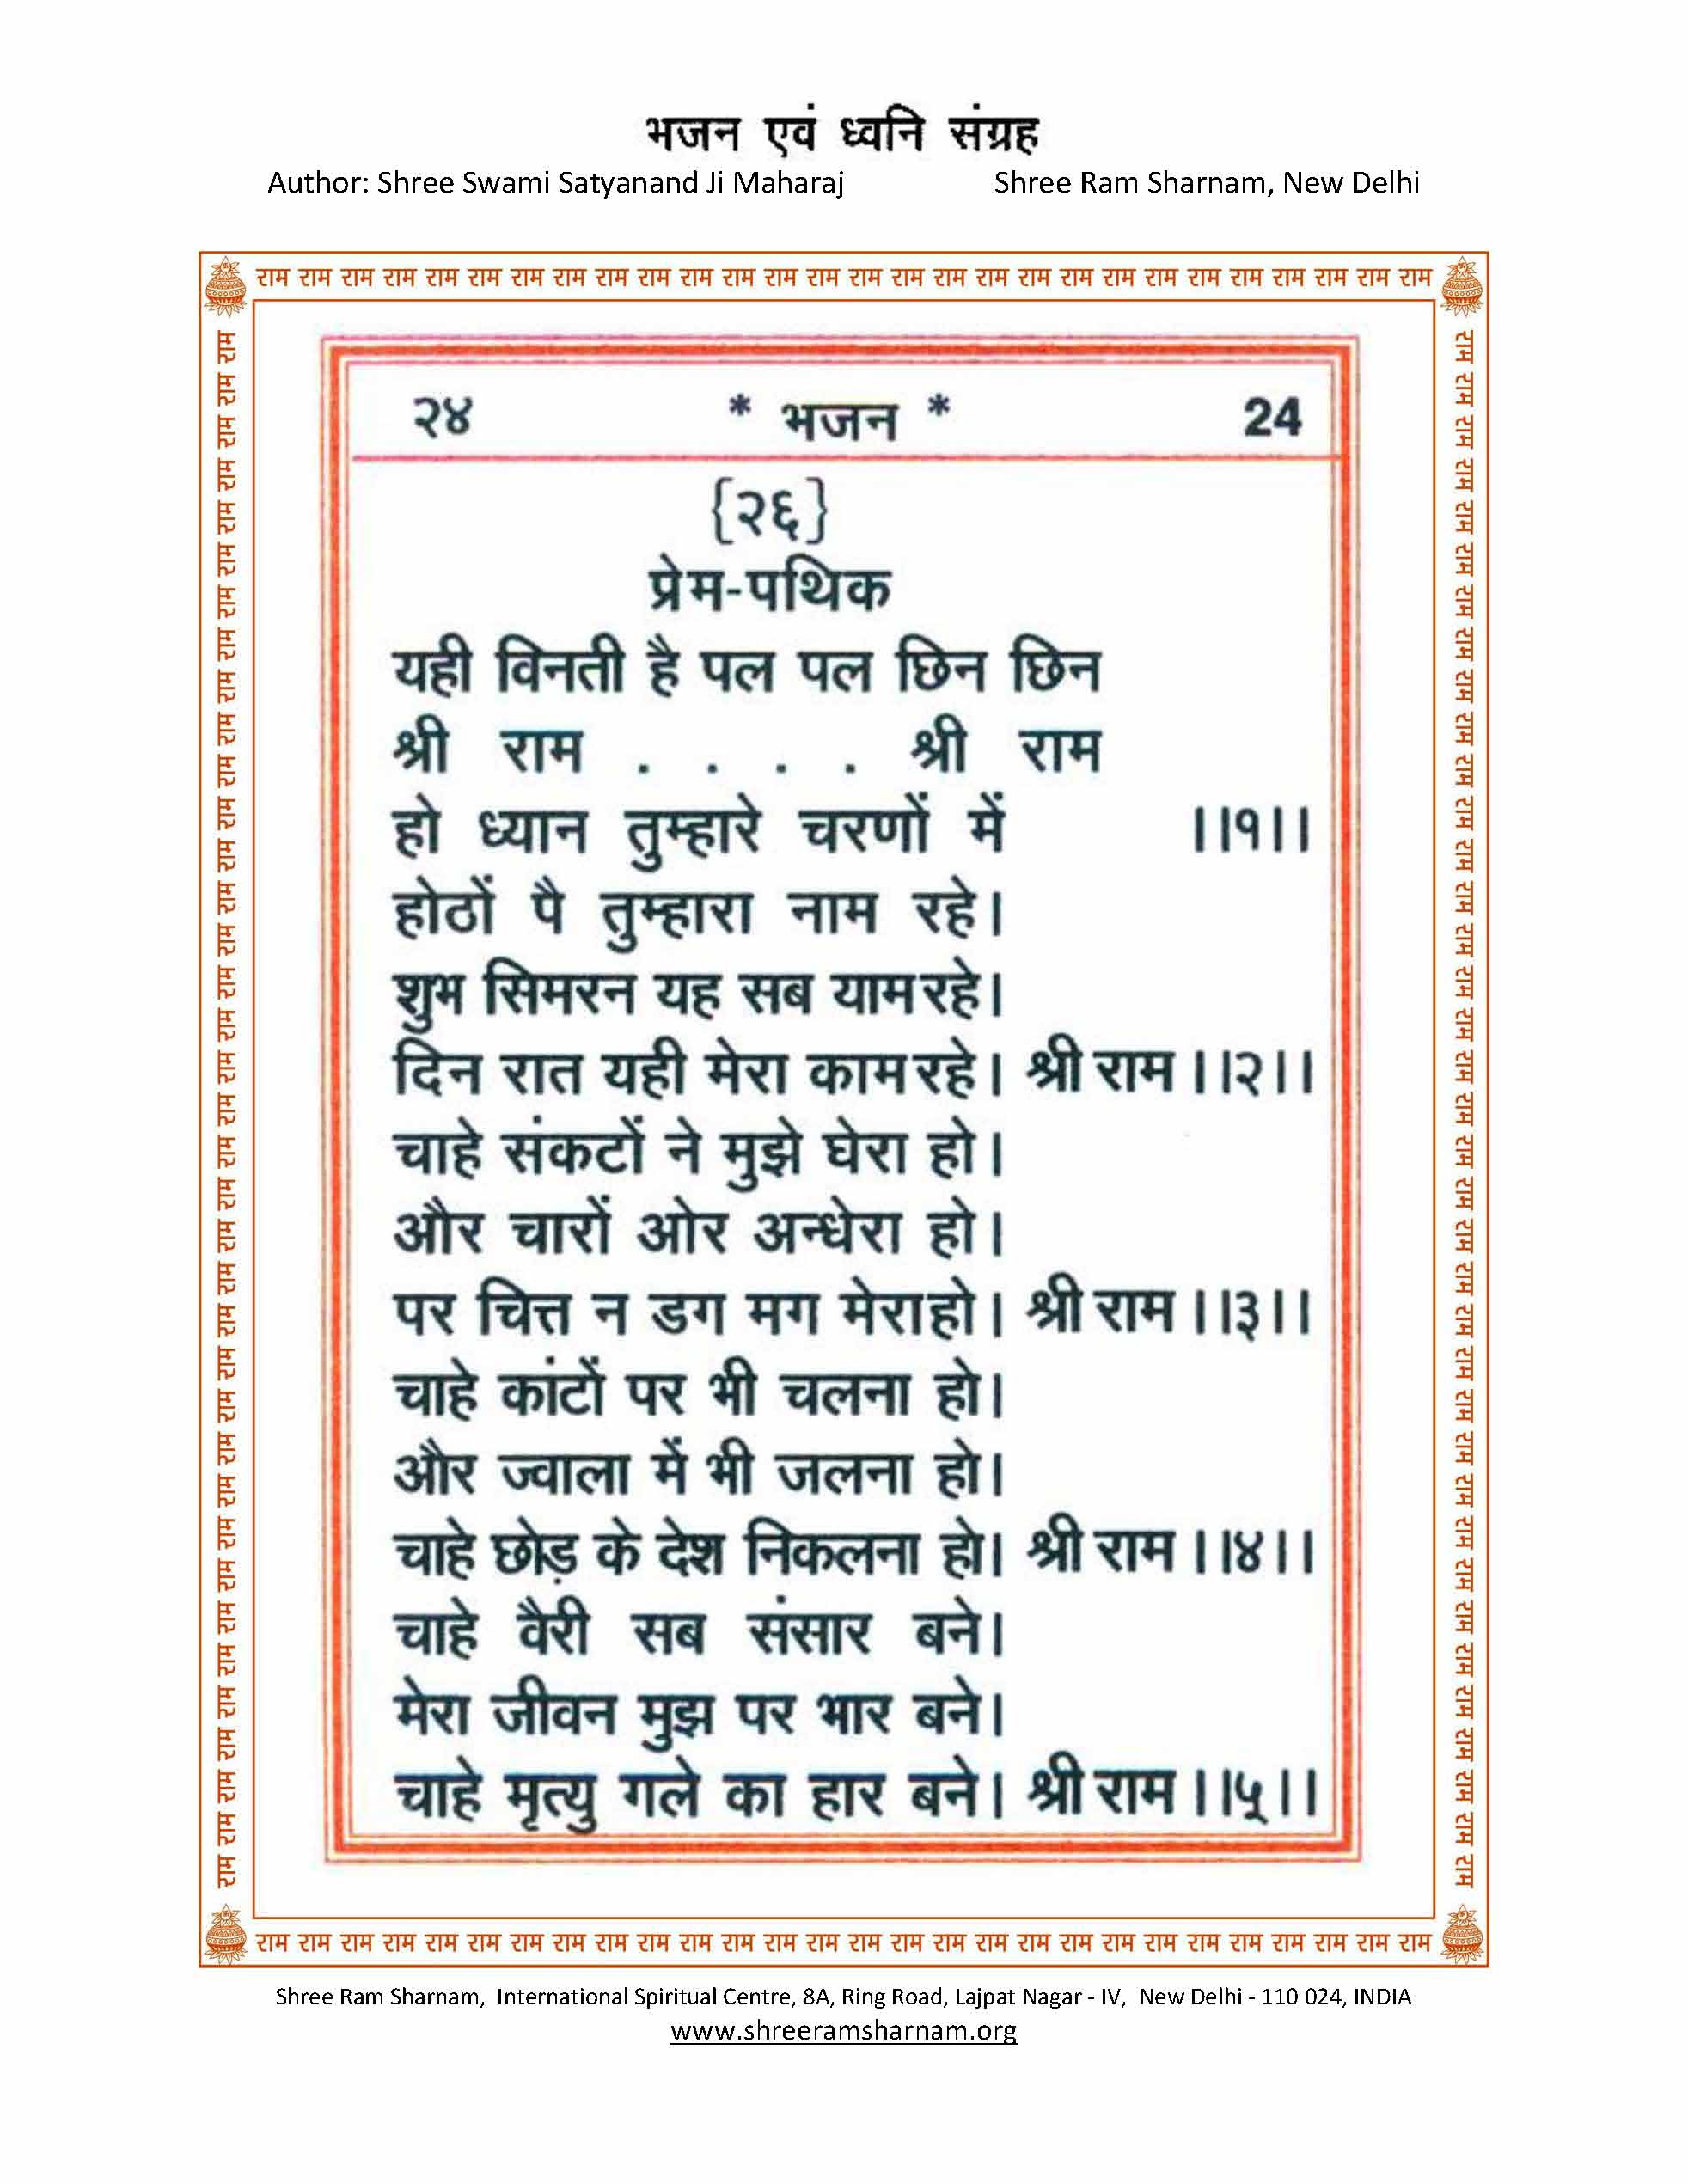 भजन एवं ध्वनि संग्रह
Author: Shree Swami Satyanand Ji Maharaj Shree Ram Sharnam, New Delhi
राम राम राम राम राम राम राम राम राम राम राम राम राम राम राम राम राम राम राम राम राम राम राम राम राम राम राम राम
२४ * भजन * 24
{२६}
प्रेम-पथिक
यही विनती है पल पल छिन छिन
श्री राम . . . . श्री राम
हो ध्यान तुम्हारे चरणों में ।।१।।
होठों पै तुम्हारा नाम रहे।
शुभ सिमरन यह सब याम रहे।
दिन रात यही मेरा काम रहे। श्री राम ।।२।।
चाहे संकटों ने मुझे घेरा हो।
और चारों ओर अन्धेरा हो।
पर चित्त न डग मग मेरा हो। श्री राम ।।३।।
चाहे कांटों पर भी चलना हो।
और ज्वाला में भी जलना हो।
चाहे छोड़ के देश निकलना हो। श्री राम ।।४।।
चाहे वैरी सब संसार बने।
मेरा जीवन मुझ पर भार बने।
चाहे मृत्यु गले का हार बने। श्री राम ।।५।।
राम राम राम राम राम राम राम राम राम राम राम राम राम राम राम राम राम राम राम राम राम राम राम राम राम राम राम राम
राम राम राम राम राम राम राम राम राम राम राम राम राम राम राम राम राम राम राम राम राम राम राम राम राम राम राम राम राम राम राम राम राम राम राम राम राम
राम राम राम राम राम राम राम राम राम राम राम राम राम राम राम राम राम राम राम राम राम राम राम राम राम राम राम राम राम राम राम राम राम राम राम राम राम
Shree Ram Sharnam, International Spiritual Centre, 8A, Ring Road, Lajpat Nagar - IV, New Delhi - 110 024, INDIA
www.shreeramsharnam.org